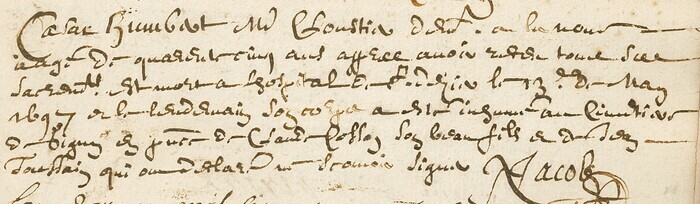 Cæsar Humbert Mtre
aagé de quarente cinq ans apprez avoir receu tous ses
sacrentz est mort a l'hospital de St dizier le 13e de May
1697 et le lendemain son corps a esté inhumé au Cimetiere
de en pnce de Claude Cosson son beau fils et de Jean
Toussain qui ont declaré ne scavoir signer Jacob